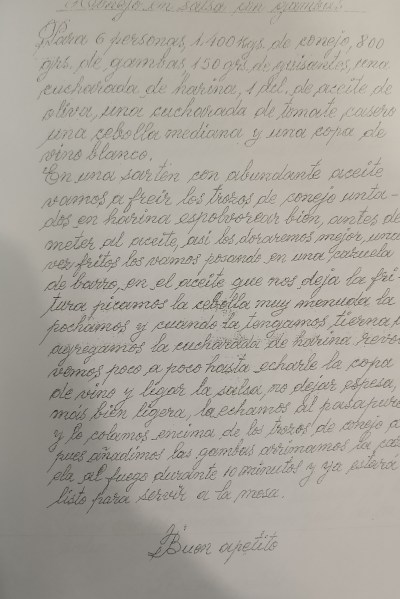 Conejo en salsa con gambas
Para 6 personas, 1.400 Kgs. de conejo, 800
grs. de gambas 150 grs. de guisantes, una
cucharada de harina, 1 dcl. de aceite de
oliva, una cucharada de tomate casero
una cebolla mediana y una copa de
vino blanco.
En una sartén con abundante aceite
vamos a freir los trozos de conejo unta-
dos en harina espolvorear bien, antes de
meter al aceite, así los doraremos mejor, una
vez fritos los vamos posando en una cazuela
de barro, en el aceite que nos deja la fri-
tura picamos la cebolla muy menuda la
pochamos y cuando la tengamos tierna
agregamos la cucharada de harina remo
vemos poco a poco hasta echarle la copa
de vino y ligar la salsa, no dejar espesa,
más bien ligera, la echamos al pasapuré
y lo colamos encima de los trozos de conejo
pues añadimos las gambas arrimamos la
ela al fuego durante 10 minutos y ya estará
listo para servir a la mesa.
Buen apetito